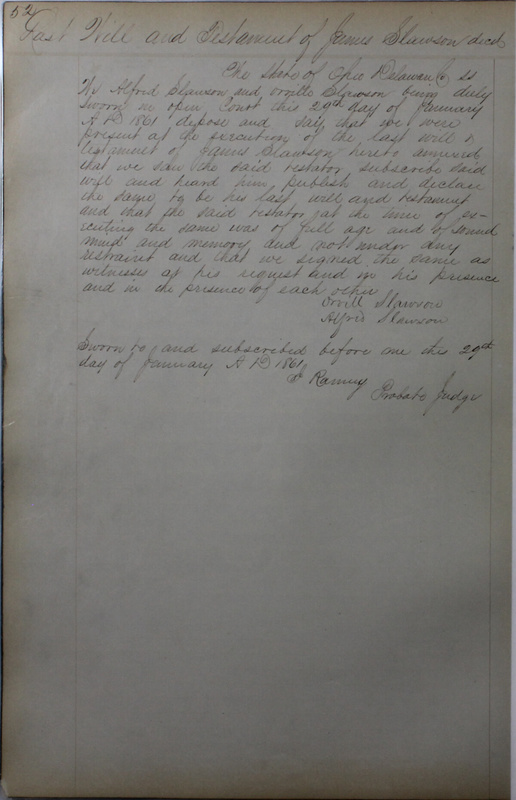 52
Last Will and Testament of James Slawson decd
The State of Ohio Delaware Co ss
We Alford Slawson and Orville Slawson being duly
sworn in open Court this 29th day of January
A D 1861 depose and say that we were
present at the execution of the last will &
testament of James Slawson hereto annexed
that we saw the said testator subscribe said
will and heard him publish and declare
the same to be his last will and testament
and that the said testator at the time of ex-
ecuting the same was of full age and of sound
mind and memory and not under any
restraint and that we signed the same as
witnesses at his request and in his presence
and in the presence of each other
Orvill Slawson
Alfred Slawson
Sworn to and subscribed before me this 29th
day of January A D 1861
Ramey
Probate Judge